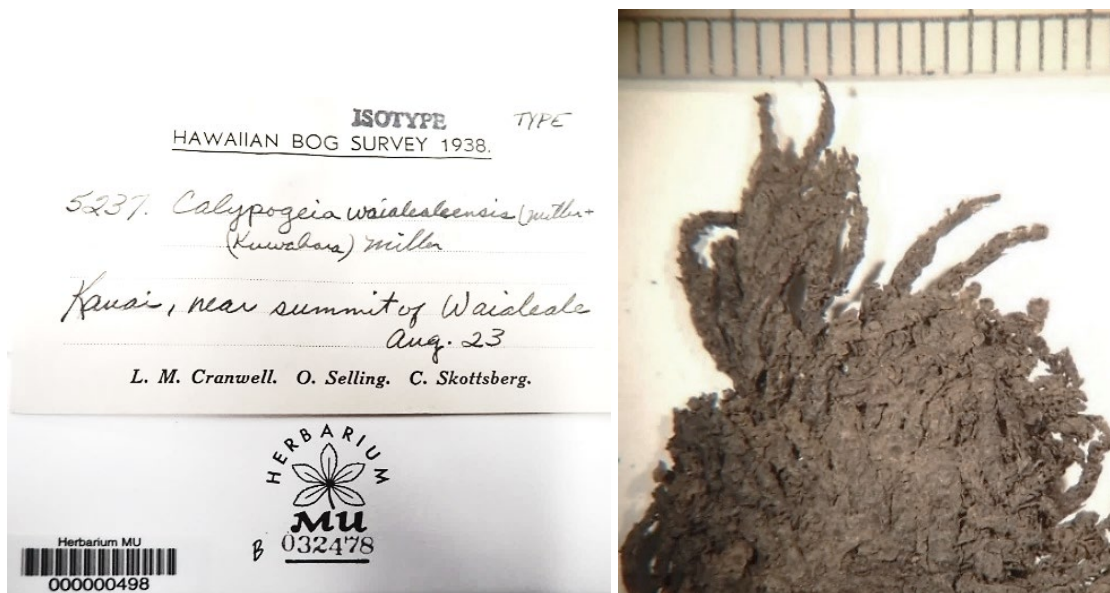 ISOTYPE TYPE
HAWAIIAN BOG SURVEY 1938.
5237. Calypogeia waialealeensis (Miller +
(Kuwahara) Miller
Kauai, near summit of Waialeale
Aug. 23
L. M. Cranwell. O. Selling. C. Skottsberg.
HERBARIUM
MU
B 032478
Herbarium MU
000000498